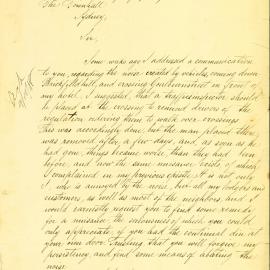 The Townhall,
Sydney,
Sir,
Some weeks ago I addressed a communication
to you, regarding the noise created by vehicles, coming down
Brickfield hill, and crossing Goulburn street in front of
my hotel. I suggested, that a traffic inspector should
be placed at the crossing to remind drivers of the
regulation ordering them to walk over crossings.
This was accordingly done, but the man placed there,
was removed after a few days, and, as soon as he
had gone, things became worse, than they had been
before, and now the same nuisance exists of which
I complained in my previous epistle. It is not only
I, who is annoyed by the noise, but all my lodgers and
customers, as well as most of the neighbors, and I
would earnestly request you to find some remedy
for a nuisance the seriousness of which you could
only appreciate, if you had the continual din at
your own door. Trusting that you will forgive my
persistency, and find some means of abating the
noise.